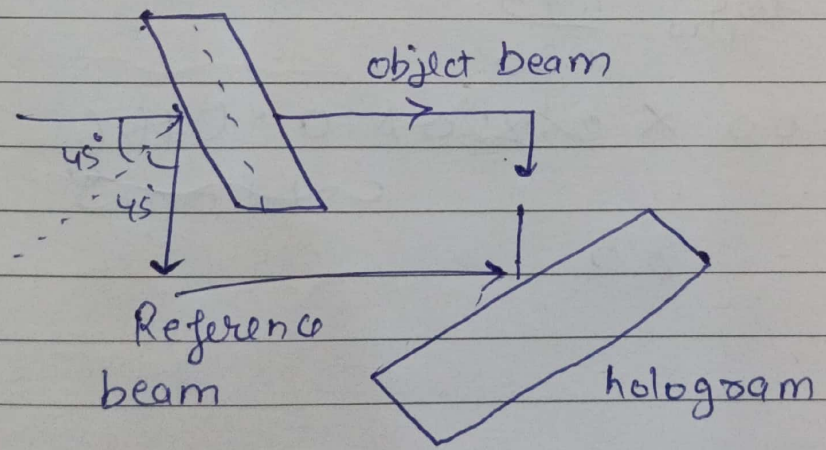 object beam
45°
45°
Reference
beam
hologram